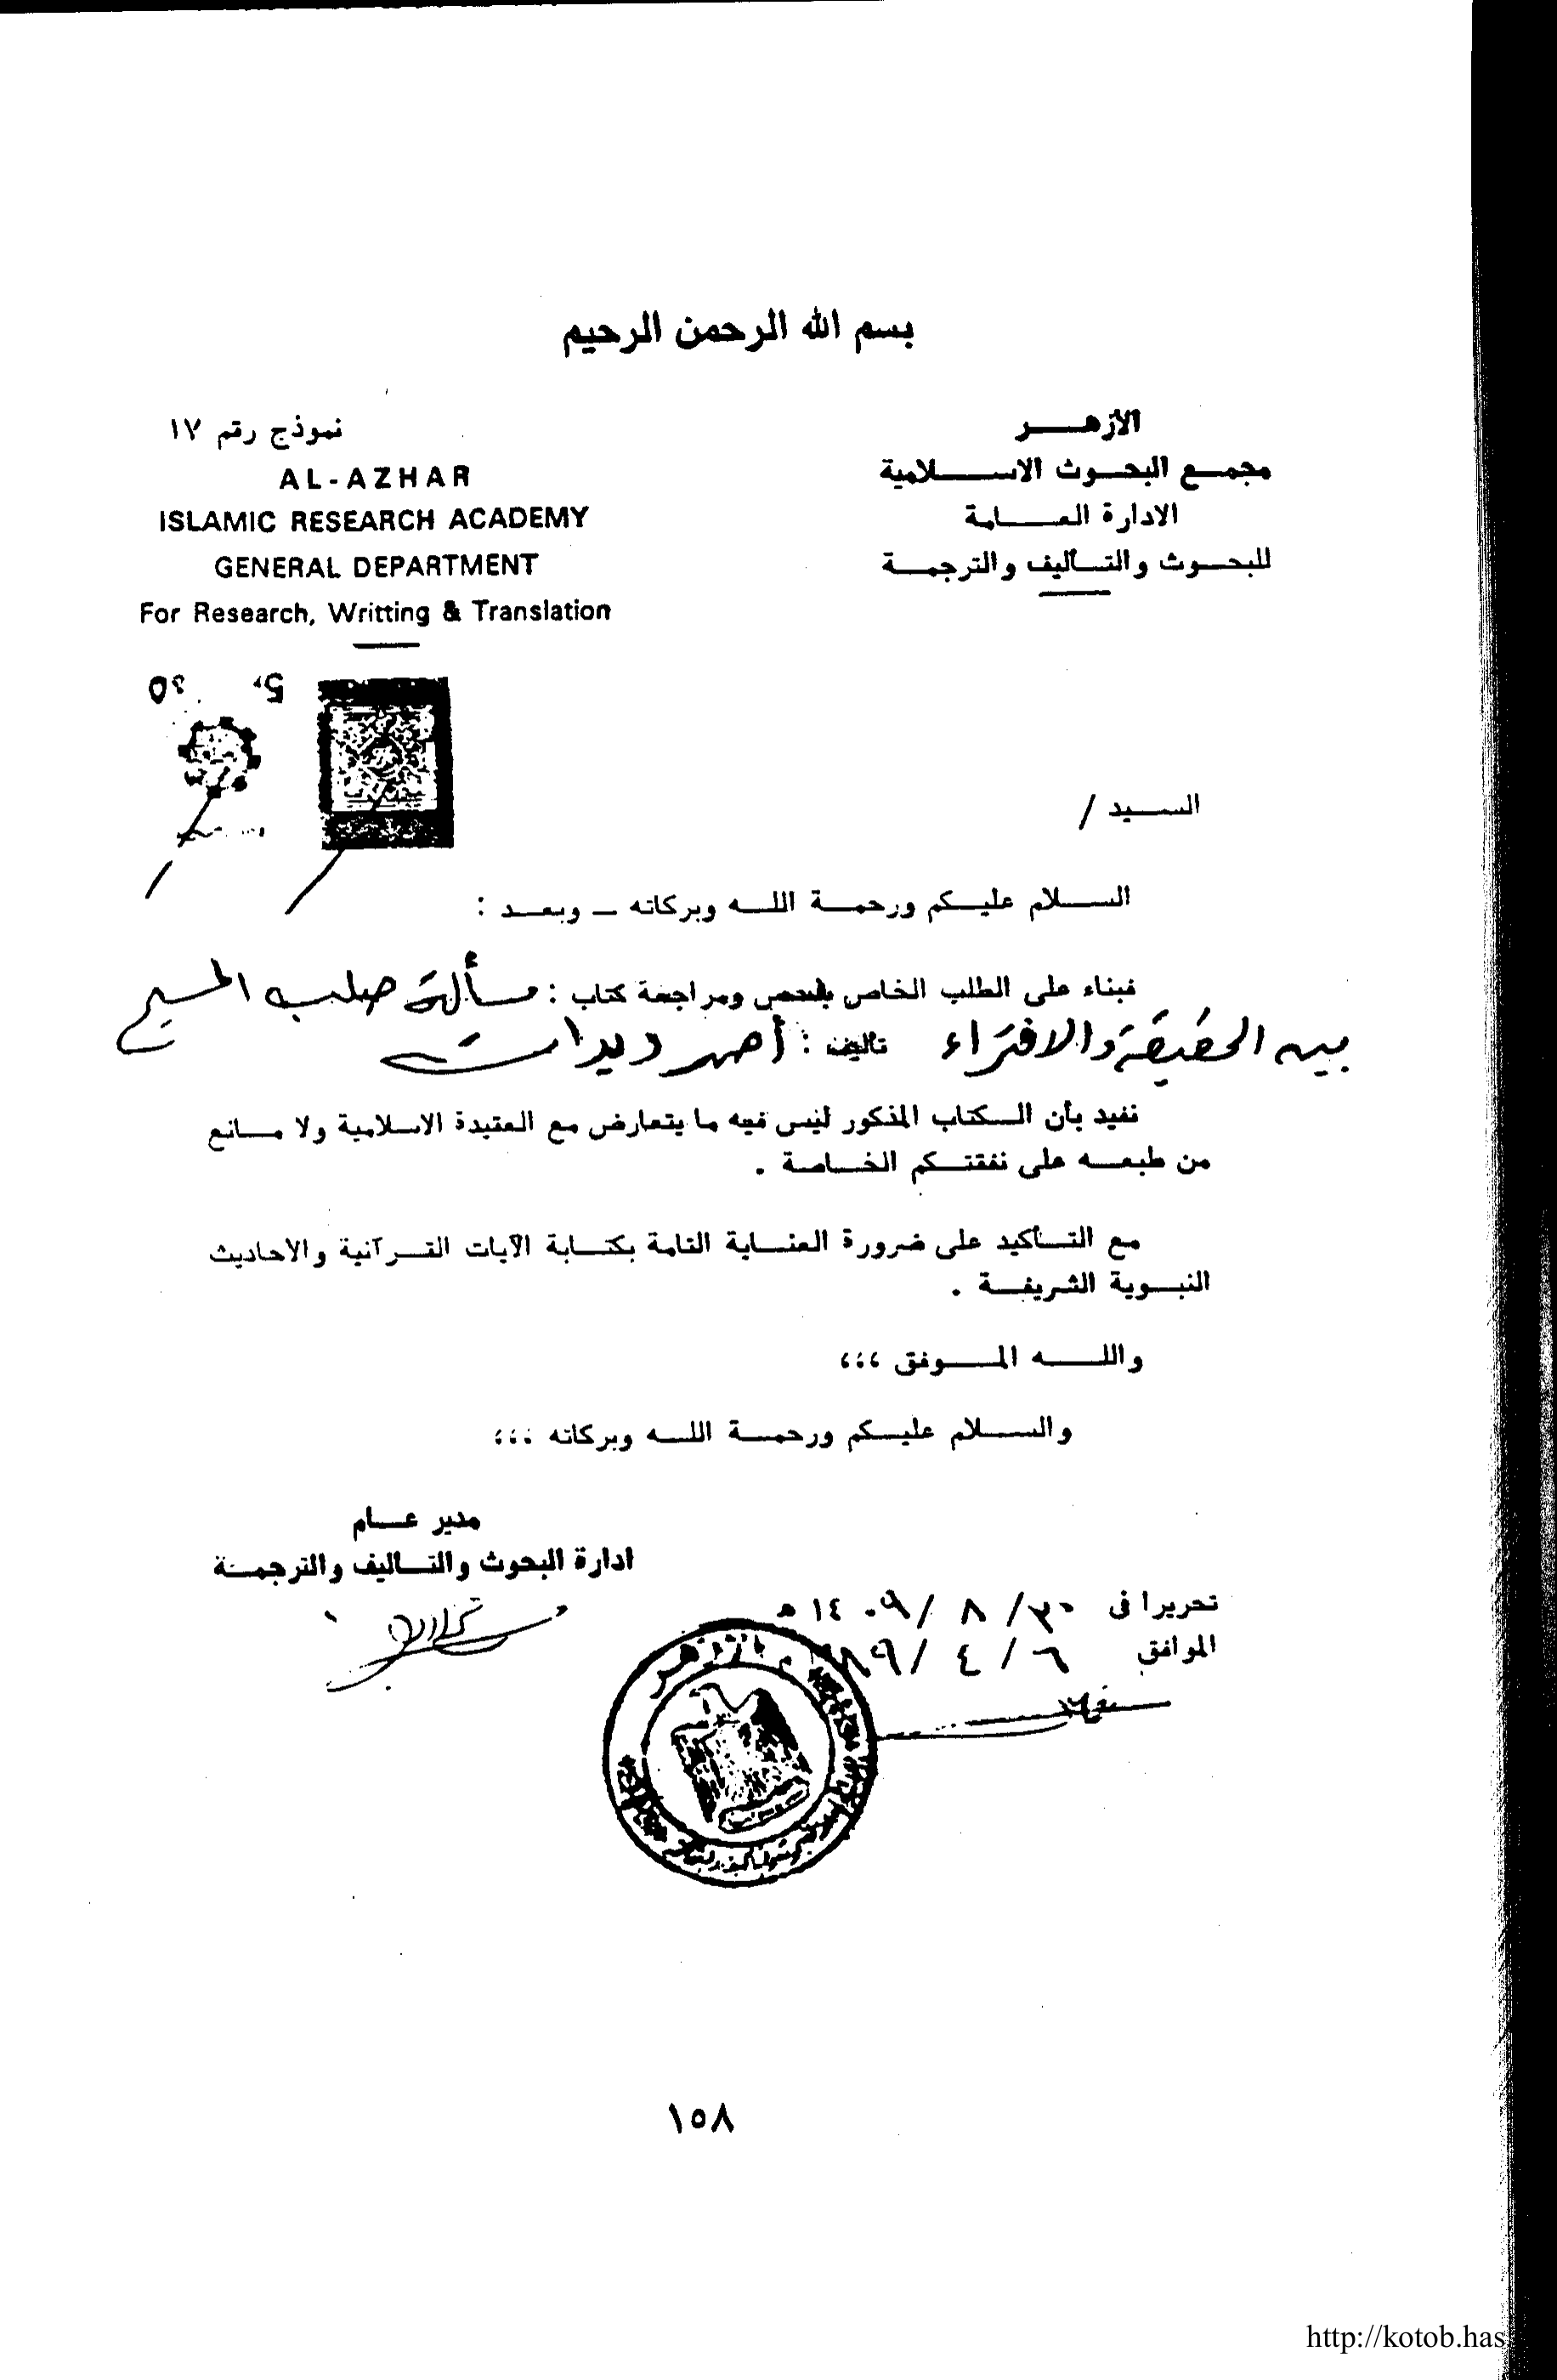 بسم الله الرحمن الرحيم
الأزهر
مجمع البحوث الاسلامية
الادارة العامة
للبحوث والتأليف والترجمة
نموذج رقم ١٧
AL-AZHAR
ISLAMIC RESEARCH ACADEMY
GENERAL DEPARTMENT
For Research, Writting & Translation
السيد /
السلام عليكم ورحمة الله وبركاته – وبعد :
فبناء على الطلب الخاص بفحص ومراجعة كتاب : مسألة صلب المسيح
بين الحقيقة والافتراء تأليف : أحمد ديدات
نفيد بأن الكتاب المذكور ليس فيه ما يتعارض مع العقيدة الاسلامية ولا مانع
من طبعه على نفقتكم الخاصة .
مع التأكيد على ضرورة العناية التامة بكتابة الآيات القرآنية والاحاديث
النبوية الشريفة .
والله الموفق ،،،
والسلام عليكم ورحمة الله وبركاته ،،،
مدير عام
ادارة البحوث والتأليف والترجمة
تحريرا فى ٣٠ / ٨ / ١٤٠٩ هـ
الموافق ٦ / ٤ / ٨٩ م
١٥٨
http://kotob.has